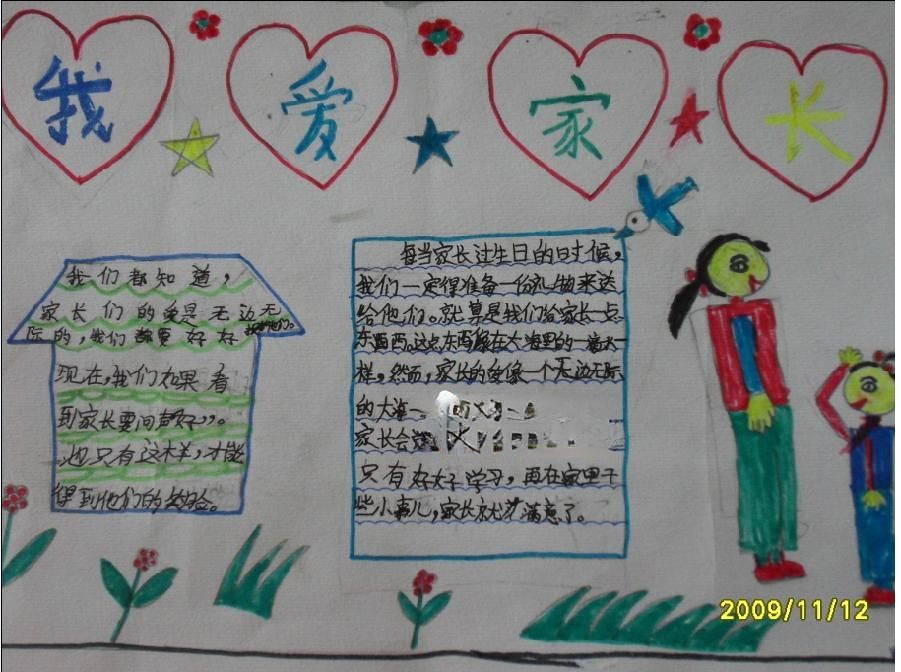 我 爱 家 长
我们都知道，
家长们的爱是无边无
际的，我们都要好好
现在，我们如果看
到家长要问声好”。
也只有这样，才能
得到他们的
每当家长过生日的时候，
我们一定得准备一份礼物来送
给他们。就算是我们给家长一点
东西，这点东西像在大海里的一滴水一
样，然而，家长的爱像一个无边无际
的大海
家长会
只有好好学习，再在家里干
些小事儿，家长就满意了。
2009/11/12